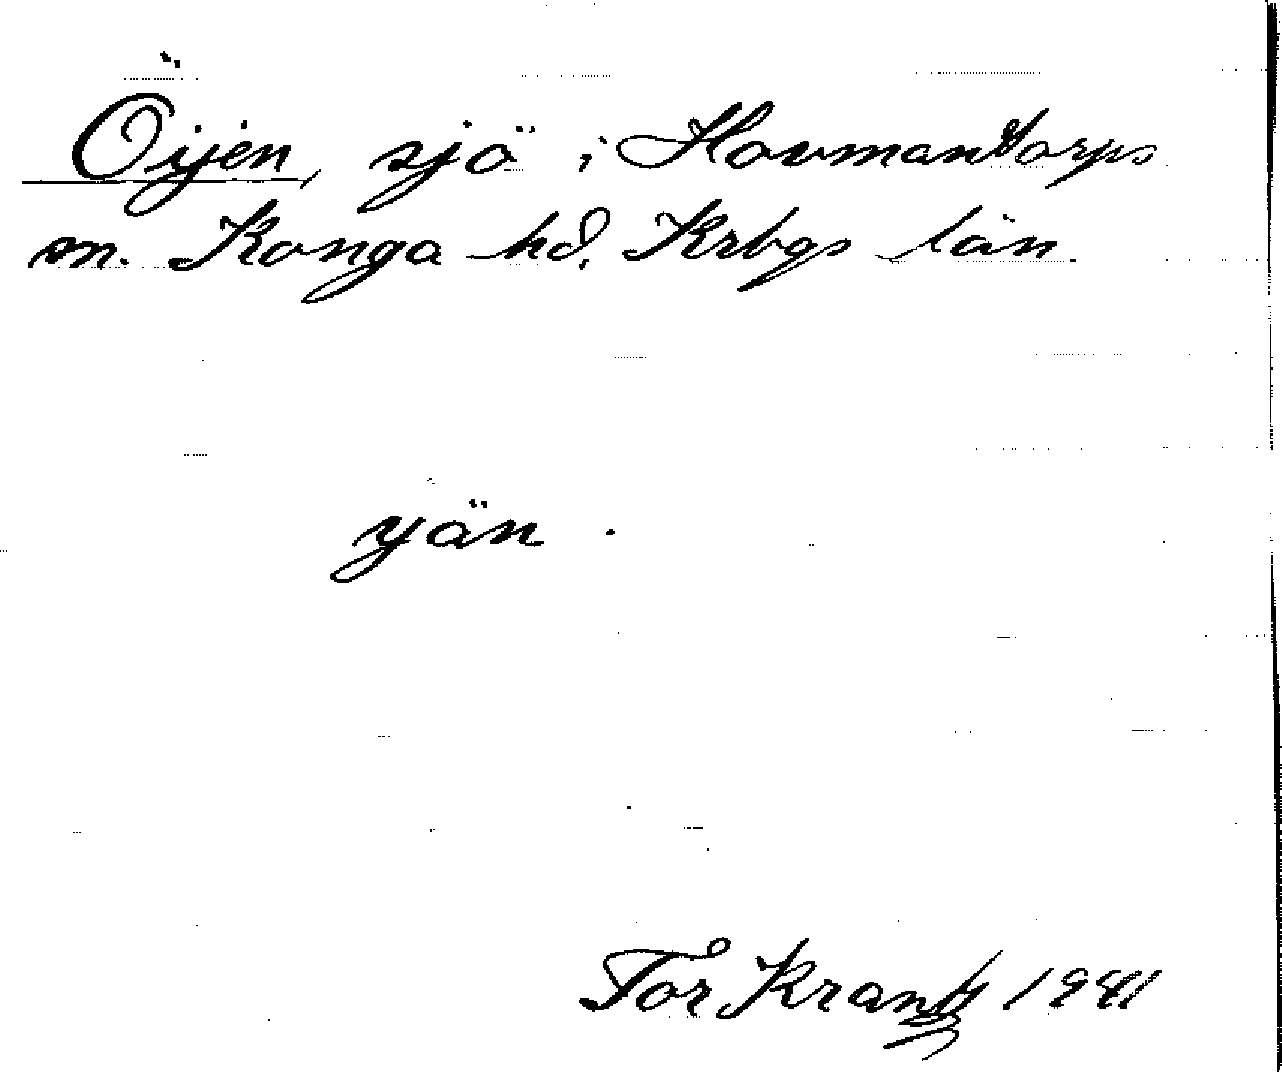 Öijen, sjö i Hovmantorps
sn. Konga hd. Krbgs län.
yän.
Tor Krantz 1941